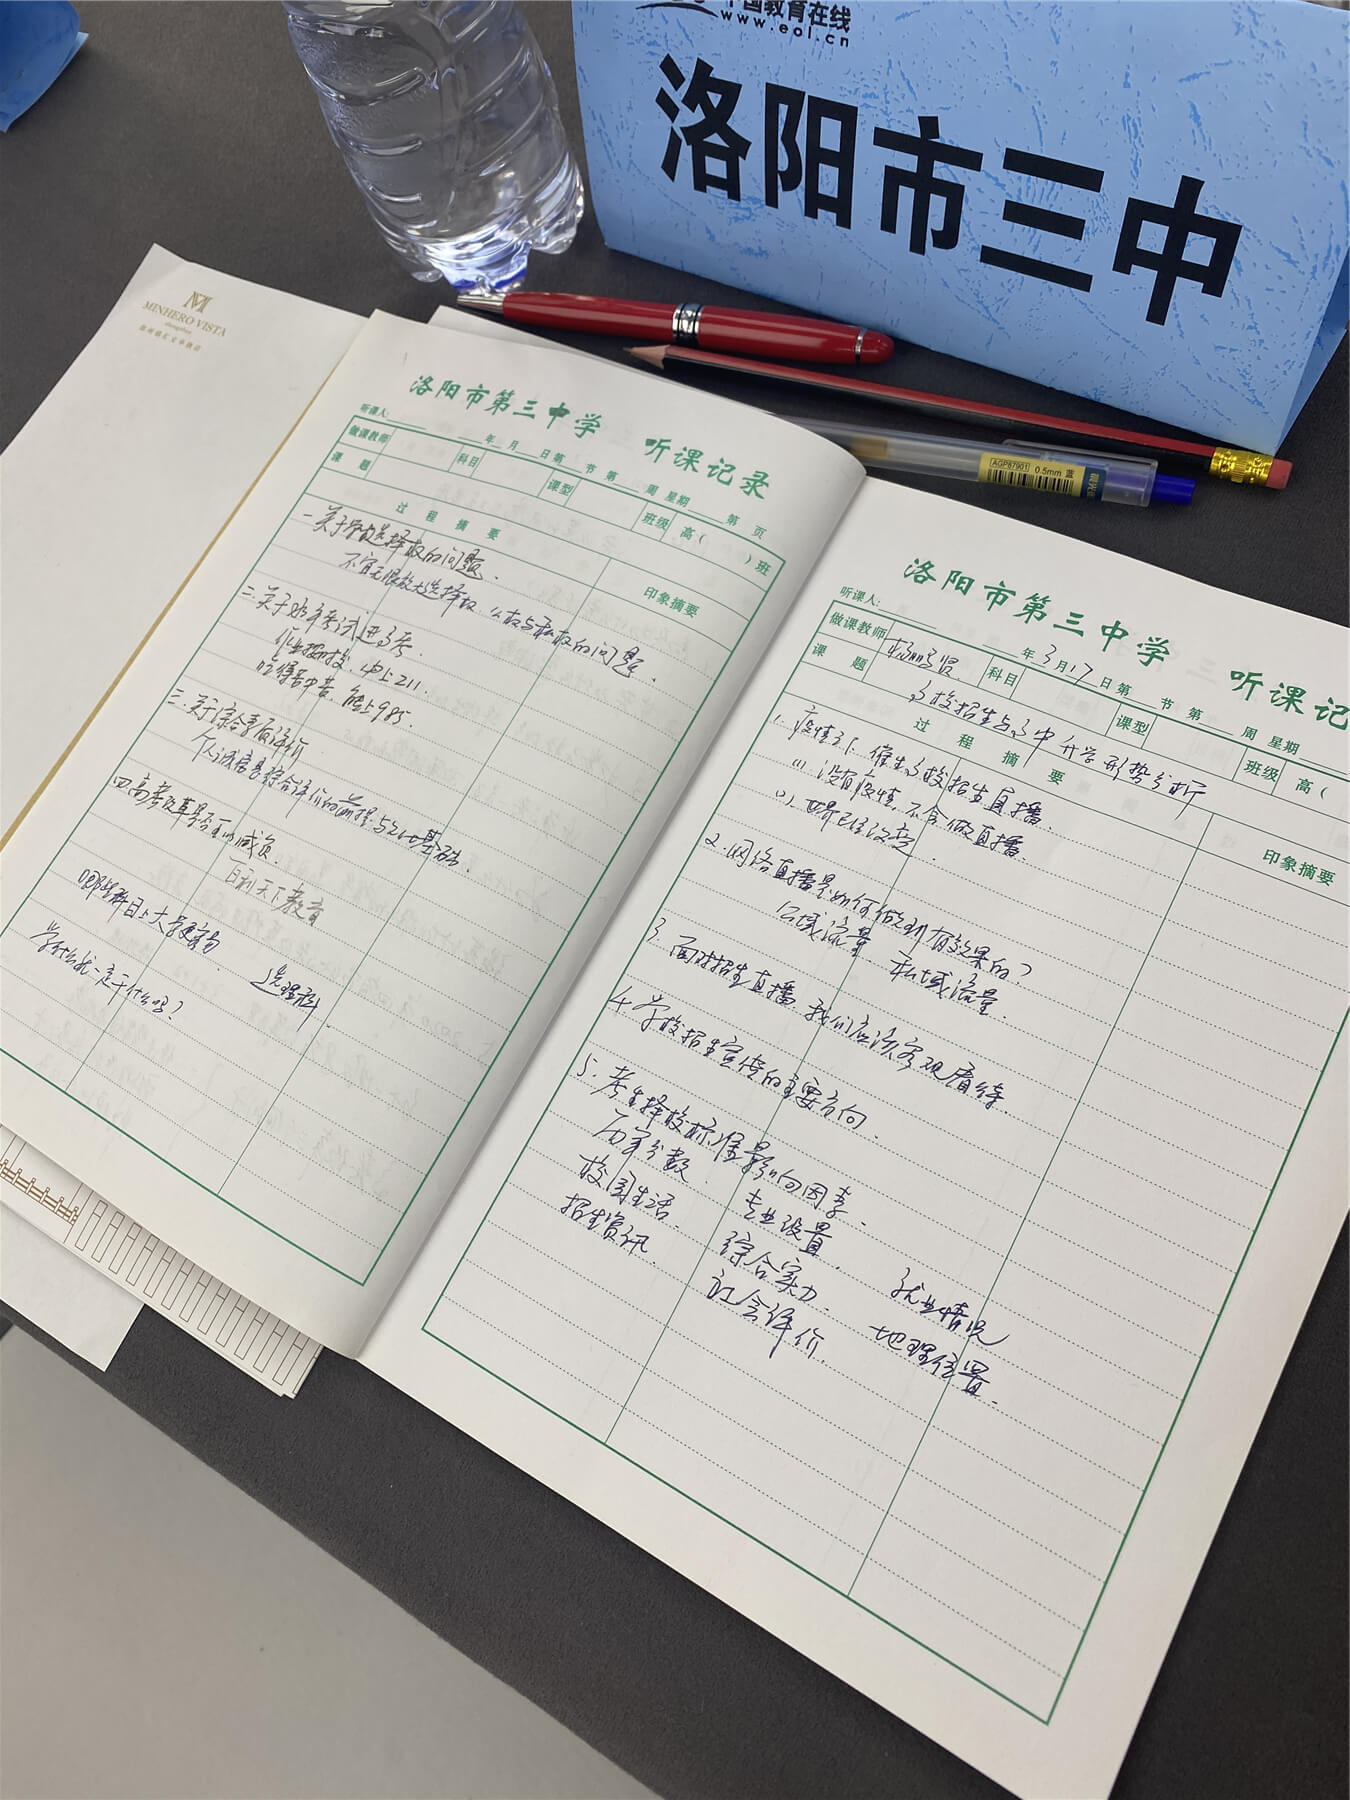 中国教育在线
www.eol.cn
洛阳市三中
MINHERO VISTA
zhengzhou
AGP87901 0.5mm 蓝
洛阳市第三中学 听课记录
听课人: 年 月 日 第 节 第 周 星期 第 页
做课教师 科目 课型 班级 高( )班
课题
过程摘要 印象摘要
一.关于学校选择权的问题.
不宜无限放大选择权.公权与私权的问题
二.关于 考试进高考.
上211.
能上985.
三.关于综合素质评价
个人诚信是综合评价的前提与 基础.
四 高考改革是否可以减负
百利天下教育
哪些科目上大学更容易. 选理科.
学什么就一定干什么吗?
洛阳市第三中学 听课记
听课人: 年 3月17日 第 节 第 周 星期
做课教师 科目 课型 班级 高(
课题 高校招生与高中升学形势分析
过程摘要 印象摘要
1. 疫情之下.催生高校招生直播.
(1). 没有疫情.不会做直播.
(2). 世界已经改变.
2. 网络直播是如何做到有效果的?
区域流量 私域流量.
3. 面对招生直播 我们应该客观看待.
4. 学校招生宣传的主要方向.
5. 考生择校标准影响因素.
历年分数. 专业设置. 就业情况
校园生活. 综合实力. 地理位置.
招生资讯 社会评价.